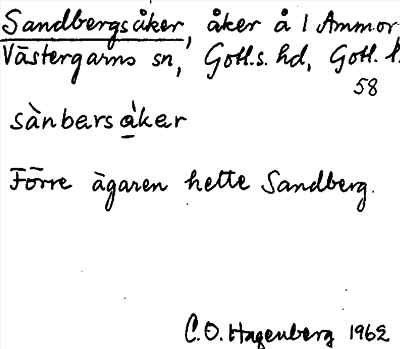 Sandbergsåker, åker å 1 Ammor
Västergarns sn, Gotl.s. hd, Gotl. l.
58
sànbersàkar
Förre ägaren hette Sandberg.
C.O. Hagenberg 1962